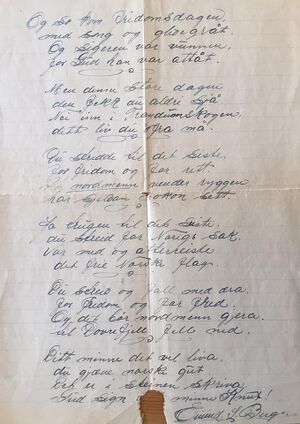 Og so kom Fridomsdagen
med song og gledegråt.
Og Sigeren var vunnen,
for Gud han var attåt.
Men denne store dagen
den fekk du aldri sjå
Nei inn i Trandumskogen
ditt liv du ofra må.
Du stridde til det siste
for fridom og for rett.
nordmenn ryggen
har sjeldan nokon sett.
til det siste
du streid for Norigs sak.
Var med og atterreiste
det frie Norske flag.
Du streid og fall med æra
for Fridom og for fred.
Og det bør nordmenn gjera
til Dovrefjell fell ned.
Ditt minne det vil liva
du gjæve norske gut
Det er i steinen skriva
Gud sign minne Knut!